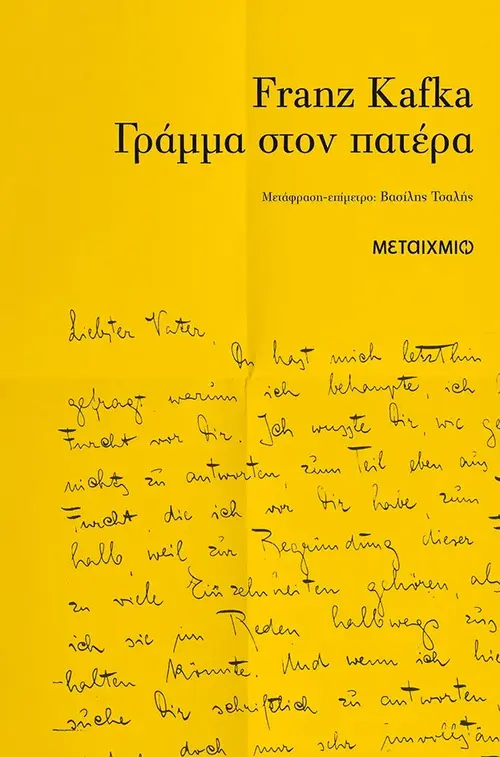 Franz Kafka
Γράμμα στον πατέρα
Μετάφραση-επίμετρο: Βασίλης Τσαλής
ΜΕΤΑΙΧΜΙΟ
Liebster Vater,
Du hast mich letzthin
gefragt, warum ich behaupte, ich
Furcht vor Dir. Ich wusste Dir, wie ge
nichts zu antworten, zum Teil eben aus
Furcht, die ich vor Dir habe, zum T
halb, weil zur Begründung dieser F
zu viele Einzelheiten gehören, al
ich sie im Reden halbwegs zus
-halten könnte. Und wenn ich hie
suche Dir schriftlich zu antworten,
doch nur sehr unvollstän